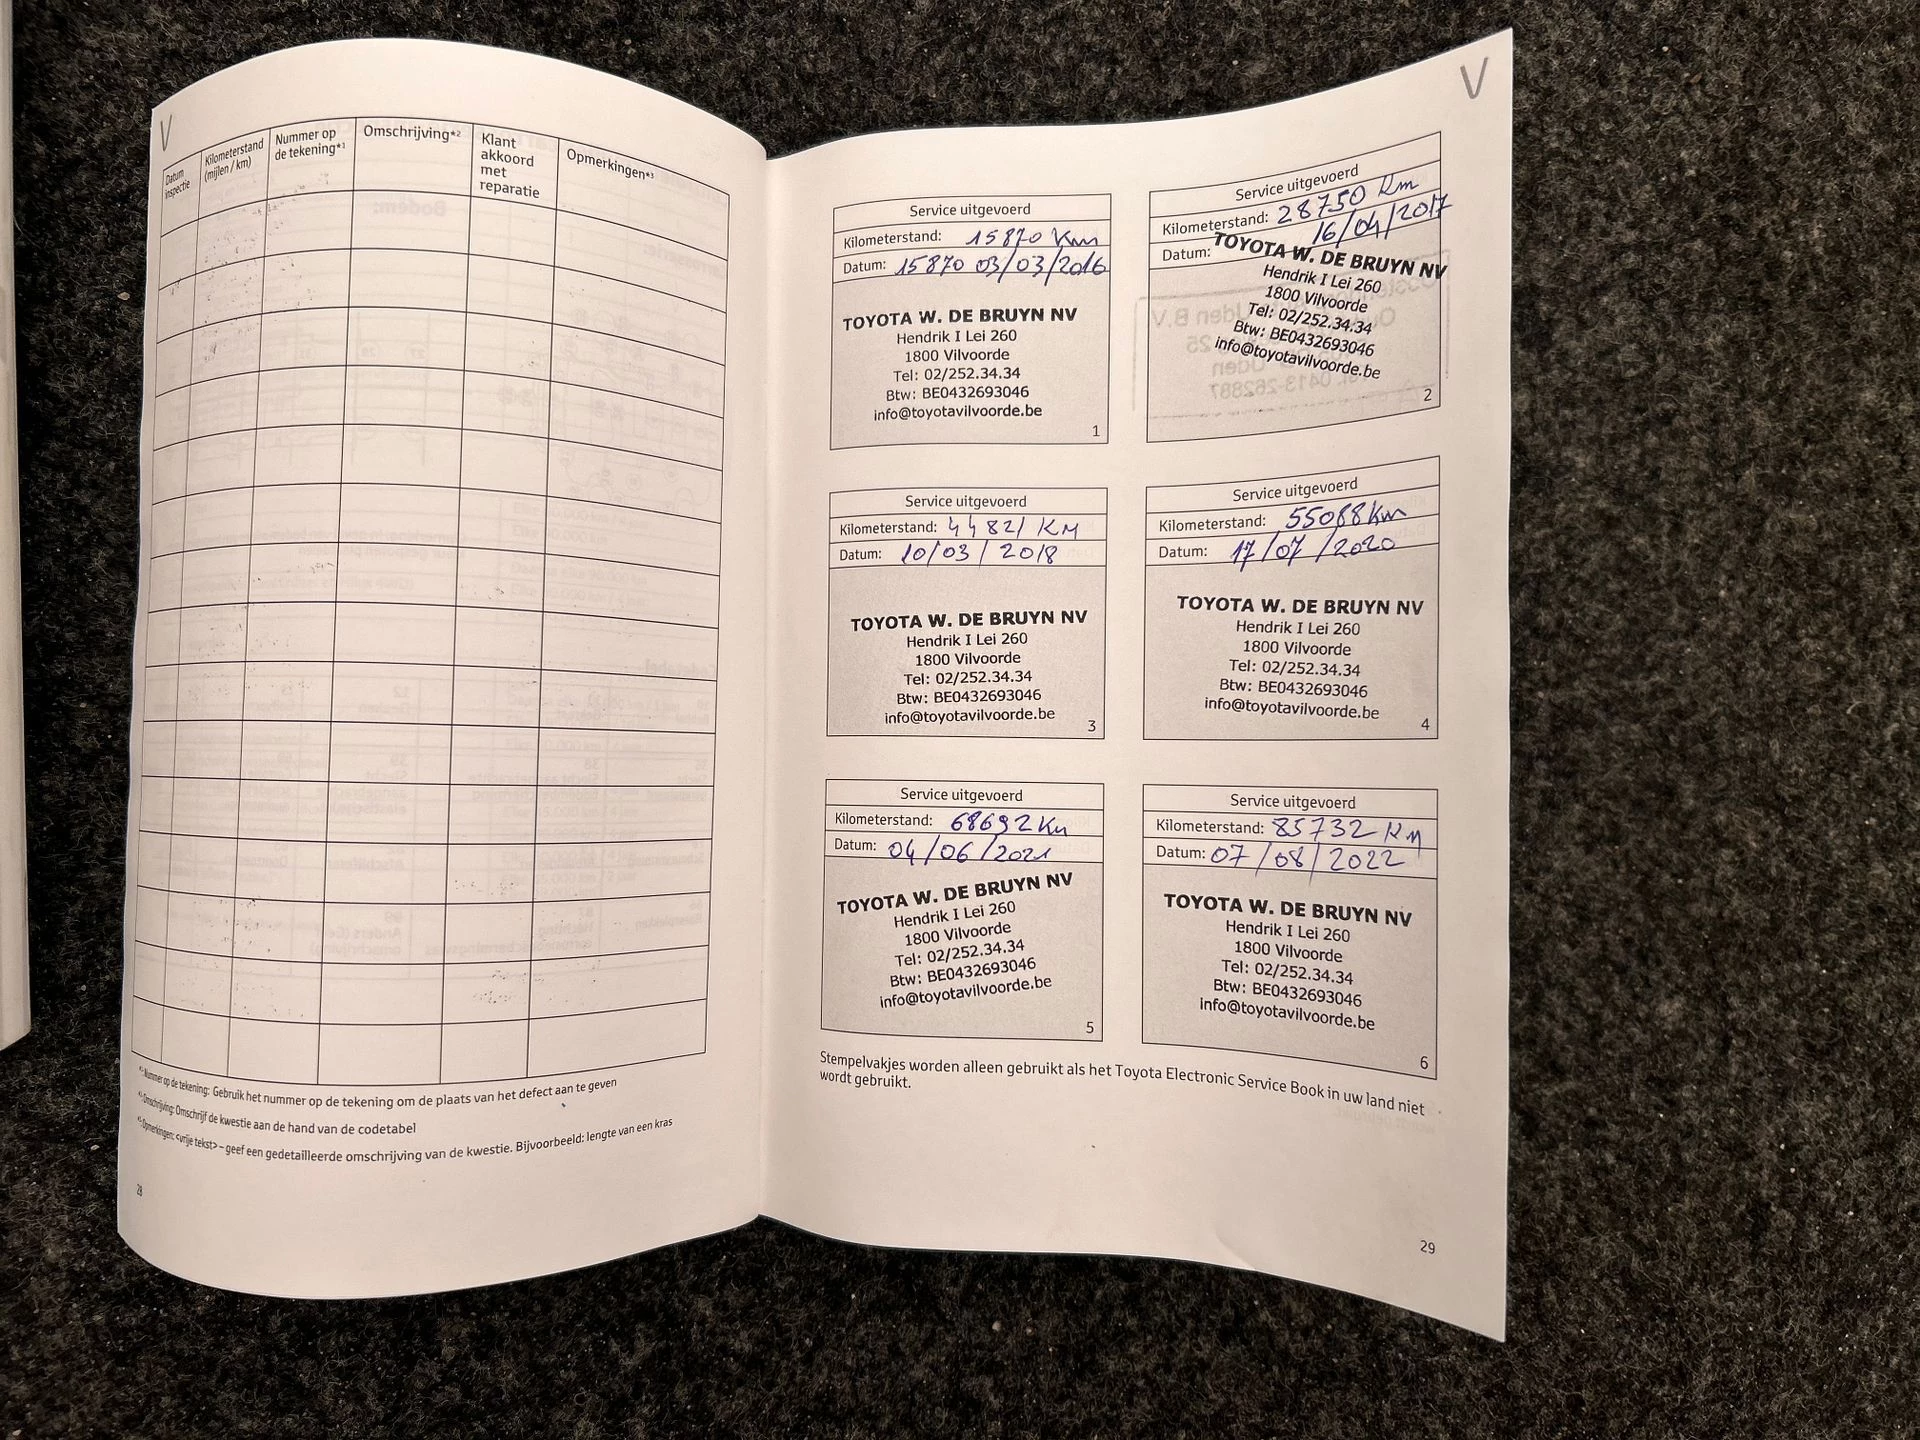 V
Datum inspectie
Kilometerstand (mijlen / km)
Nummer op de tekening*1
Omschrijving*2
Klant akkoord met reparatie
Opmerkingen*3
*1 Nummer op de tekening: Gebruik het nummer op de tekening om de plaats van het defect aan te geven
*2 Omschrijving: Omschrijf de kwestie aan de hand van de codetabel
*3 Opmerkingen: <vrije tekst> – geef een gedetailleerde omschrijving van de kwestie. Bijvoorbeeld: lengte van een kras
28
V
Service uitgevoerd
Kilometerstand: 15870 Km
Datum: 15870 03/03/2016
TOYOTA W. DE BRUYN NV
Hendrik I Lei 260
1800 Vilvoorde
Tel: 02/252.34.34
Btw: BE0432693046
info@toyotavilvoorde.be
1
Service uitgevoerd
Kilometerstand: 28750 Km
Datum: 16/04/2017
TOYOTA W. DE BRUYN NV
Hendrik I Lei 260
1800 Vilvoorde
Tel: 02/252.34.34
Btw: BE0432693046
info@toyotavilvoorde.be
2
Service uitgevoerd
Kilometerstand: 44821 KM
Datum: 10/03/2018
TOYOTA W. DE BRUYN NV
Hendrik I Lei 260
1800 Vilvoorde
Tel: 02/252.34.34
Btw: BE0432693046
info@toyotavilvoorde.be
3
Service uitgevoerd
Kilometerstand: 55088 Km
Datum: 17/07/2020
TOYOTA W. DE BRUYN NV
Hendrik I Lei 260
1800 Vilvoorde
Tel: 02/252.34.34
Btw: BE0432693046
info@toyotavilvoorde.be
4
Service uitgevoerd
Kilometerstand: 68692 Km
Datum: 04/06/2021
TOYOTA W. DE BRUYN NV
Hendrik I Lei 260
1800 Vilvoorde
Tel: 02/252.34.34
Btw: BE0432693046
info@toyotavilvoorde.be
5
Service uitgevoerd
Kilometerstand: 85732 Km
Datum: 07/08/2022
TOYOTA W. DE BRUYN NV
Hendrik I Lei 260
1800 Vilvoorde
Tel: 02/252.34.34
Btw: BE0432693046
info@toyotavilvoorde.be
6
Stempelvakjes worden alleen gebruikt als het Toyota Electronic Service Book in uw land niet
wordt gebruikt.
29